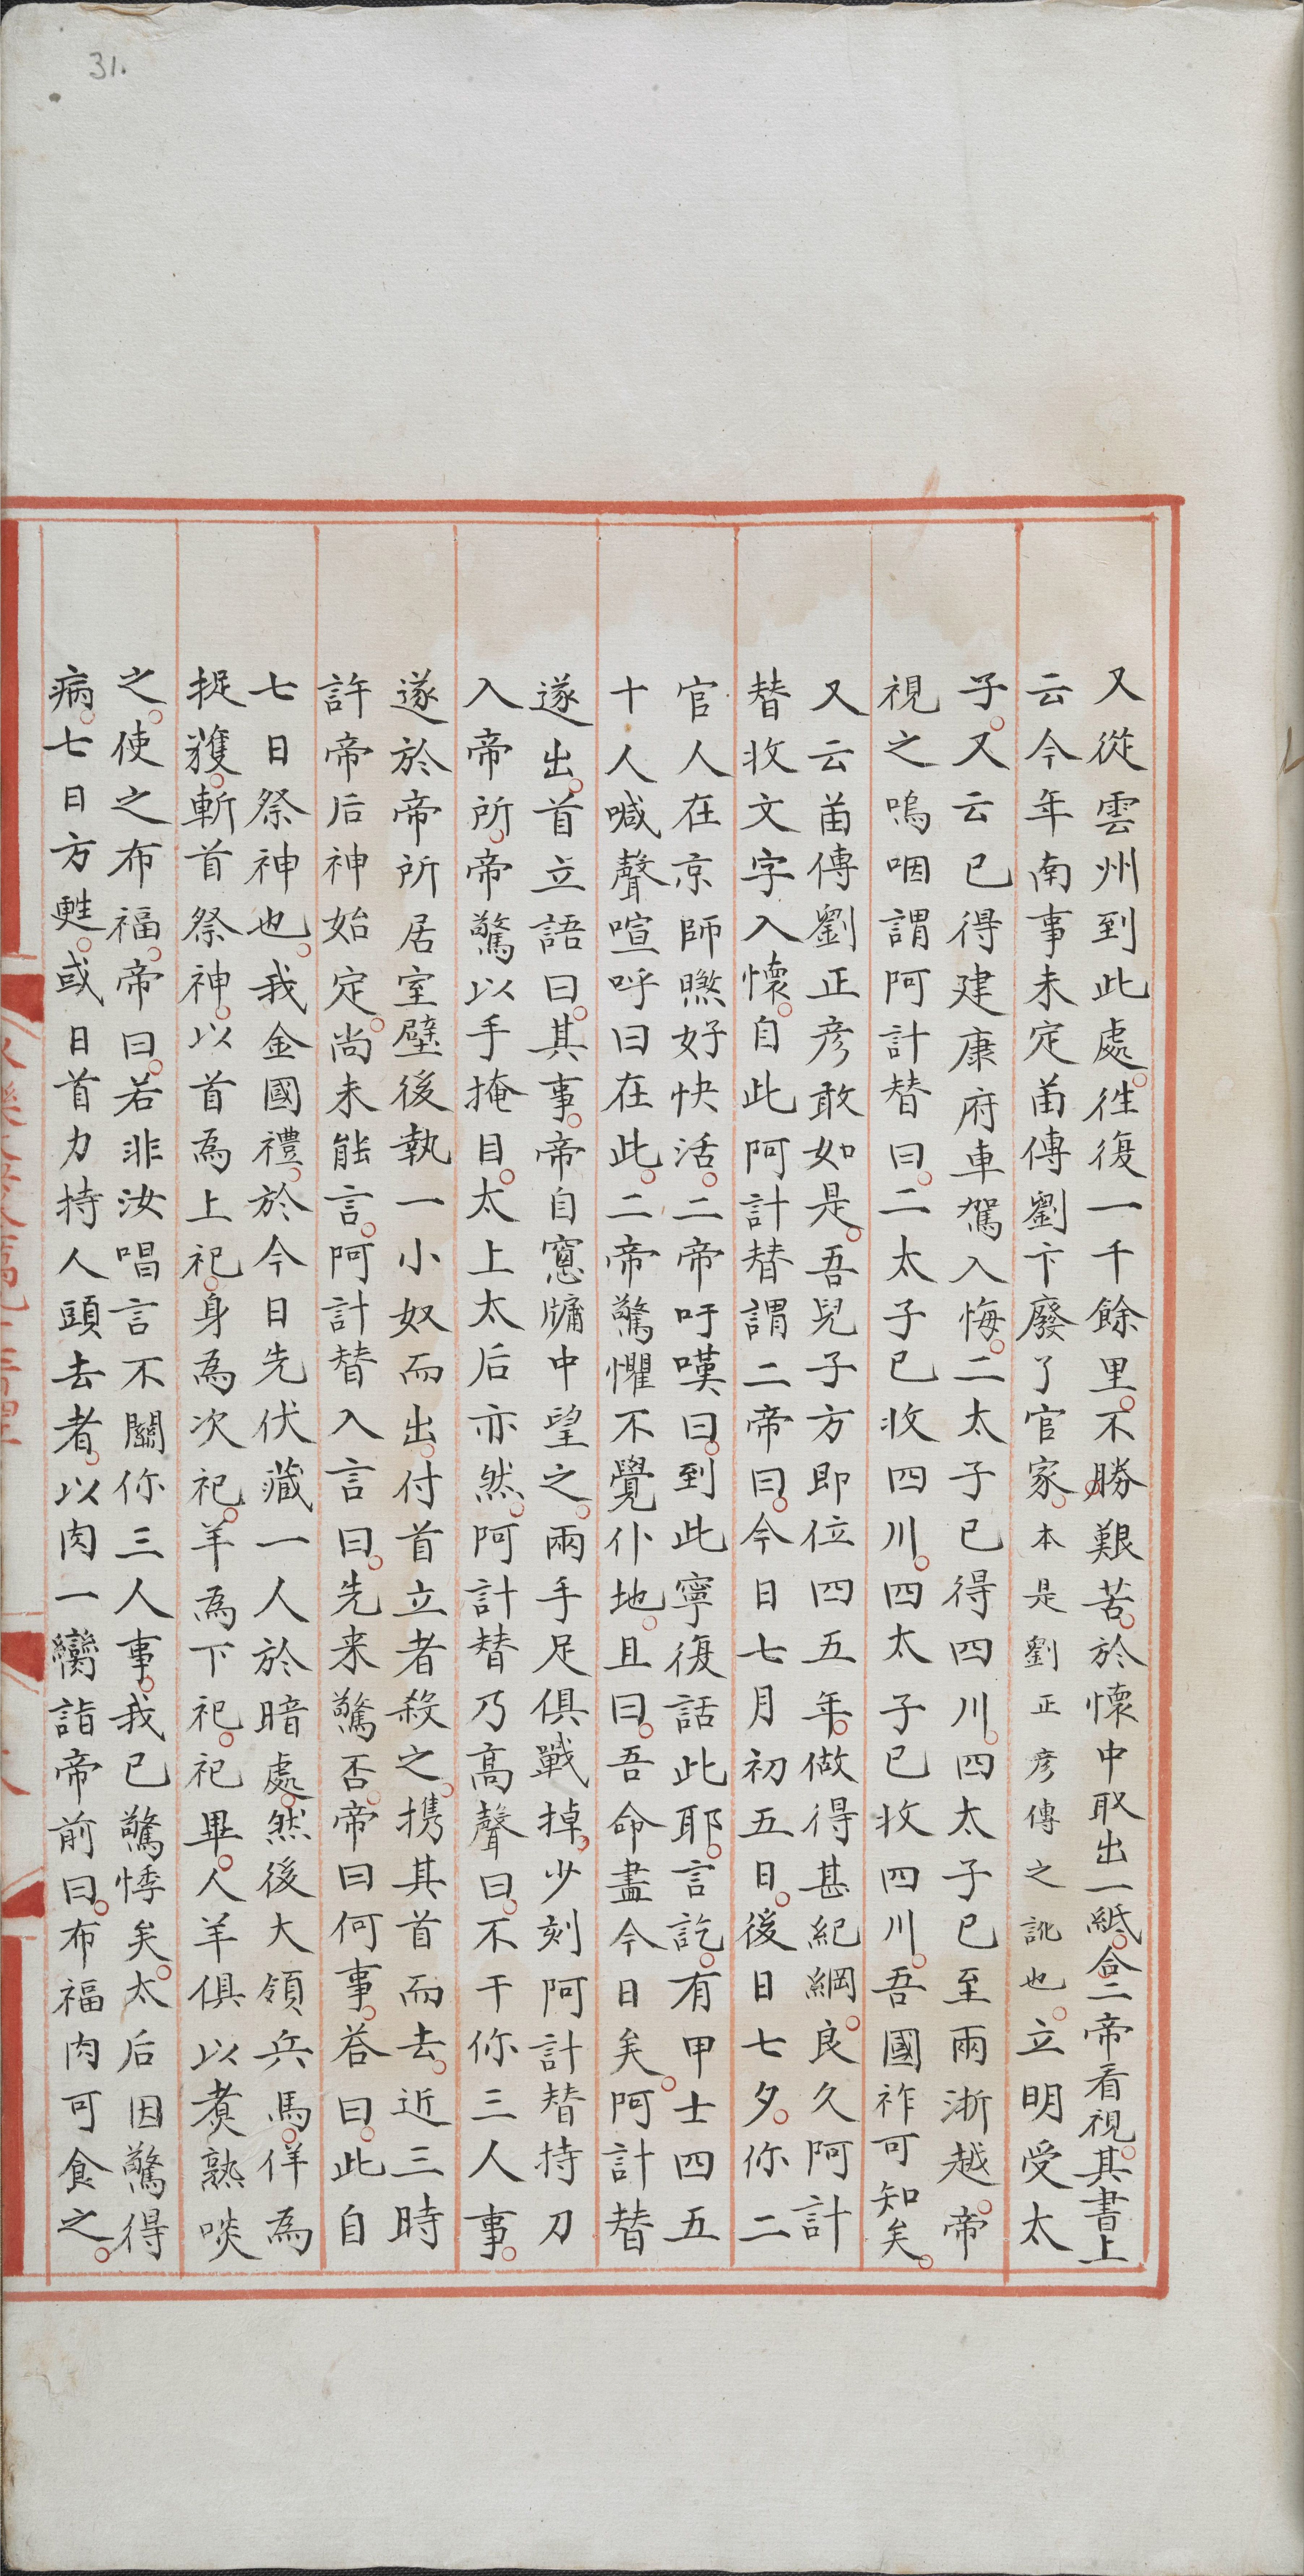 31.
又從雲州到此處。徃復一千餘里。不勝艱苦。於懷中取出一紙。令二帝看視。其書上
云今年南事未定苗傅劉卞廢了官家。本是劉正彦傳之訛也。立明受太
子。又云已得建康府車駕入悔。二太子已得四川。四太子已至兩浙越。帝
視之嗚咽謂阿計替曰。二太子已收四川。四太子已收四川。吾國祚可知矣。
又云苗傅劉正彦敢如是。吾兒子方即位四五年。做得甚紀綱。良久阿計
替收文字入懷。自此阿計替謂二帝曰。今日七月初五日。後日七夕。你二
官人在京師煞好快活。二帝吁嘆曰。到此寧復話此耶。言訖。有甲士四五
十人喊聲喧呼曰在此。二帝驚懼不覺仆地。且曰。吾命盡今日矣。阿計替
遂出。首立語曰。其事。帝自窻牖中望之。兩手足俱戰掉。少刻阿計替持刀
入帝所。帝驚以手掩目。太上太后亦然。阿計替乃高聲曰。不干你三人事。
遂於帝所居室壁後執一小奴而出。付首立者殺之。携其首而去。近三時
許帝后神始定。尚未能言。阿計替入言曰。先来驚否。帝曰何事。荅曰。此自
七日祭神也。我金國禮。於今日先伏藏一人於暗處。然後大領兵馬。佯為
捉獲。斬首祭神。以首為上祀。身為次祀。羊為下祀。祀畢。人羊俱以煑熟啖
之。使之布福。帝曰。若非汝唱言不關你三人事。我已驚悸矣。太后因驚得
病。七日方甦。或日首力持人頭去者。以肉一臠詣帝前曰。布福肉可食之。